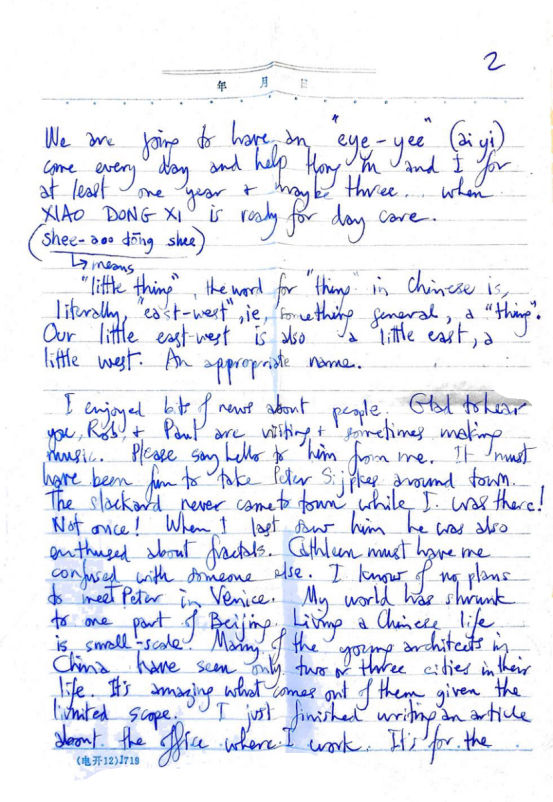 2
年 月 日
We are going to have an "eye-yee" (ai yi)
come every day and help Hong Yu and I for
at least one year + maybe three... when
XIAO DONG XI is ready for day care.
(shee-aoo dōng shee)
↳ means
"little thing", the word for "thing" in Chinese is,
literally, "east-west", ie, something general, a "thing".
Our little east-west is also a little east, a
little west. An appropriate name.
I enjoyed bits of news about people. Glad to hear
you, Rob, + Paul are visiting + sometimes making
music. Please say hello to him from me. It must
have been fun to take Peter Sijpkes around town.
The slackard never came to town while I was there!
Not once! When I last saw him he was also
enthused about fractals. Cathleen must have me
confused with someone else. I know of no plans
to meet Peter in Venice. My world has shrunk
to one part of Beijing. Living a Chinese life
is small-scale. Many of the young architects in
China have seen only two or three cities in their
life. It's amazing what comes out of them given the
limited scope. I just finished writing an article
about the office where I work. It's for the
(电开12)1719